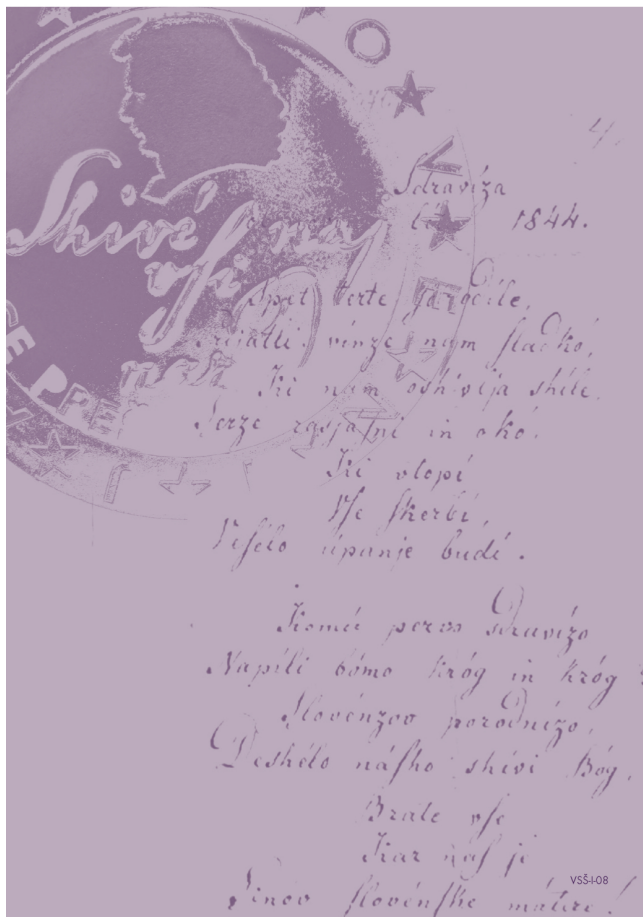 4.
Sdravíza
1844.
Shivé naj
vſi
Spet terte
Prijatli vinze nam ſladkó,
Ki nam oshivlja shile,
Serze rasjaſni in okó.
Ki vtopí
Vſe ſkerbí,
Veſélo upanje budí.
Komú pervo sdravízo
Napili bómo króg in króg
Slovénzov porodnízo,
Deshélo náſho shivi Bóg,
Brate vſe
Kar naſ je
Sinov ſlovénſke mátere!
VSŠ-I-08